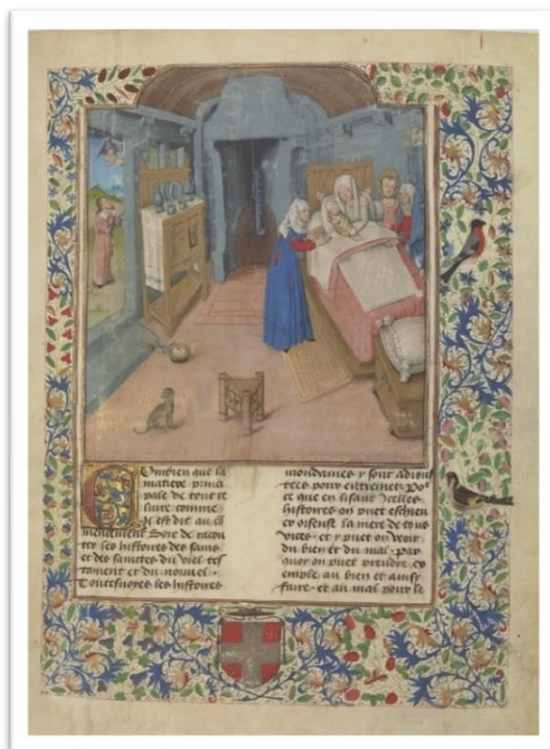 Combien que la
matiere princi
pale de tout ce
liure comme
Il est dit au co
mencement Soit de racou
ter les histoires des sains
et des sainctes du viel tes
tament et du nouuel .
Toutesuoyes les histoires
mondaines y sont adious
tees pour entremetz .
ce que en lisant Icelles
histoires on puet eschieu
er oiseuse la mere de tous
vices . et y puet on veoir
du bien et du mal . par
quoy on puet prendre ex
emple au bien et ainsy
faire . et au mal pour le